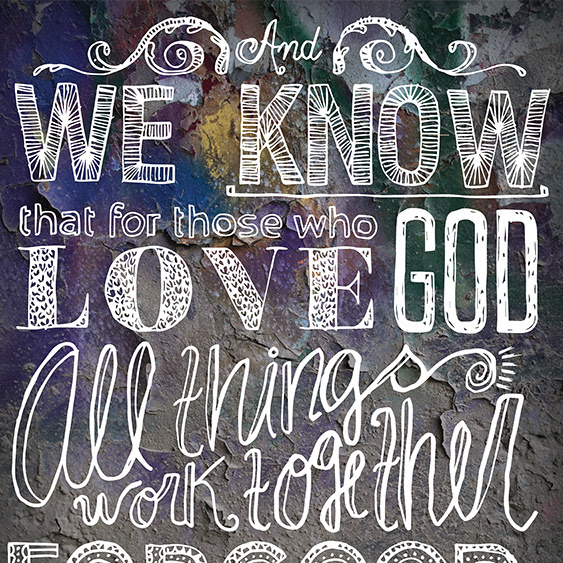 And
WE KNOW
that for those who
LOVE GOD
All things
work together
FOR GOOD